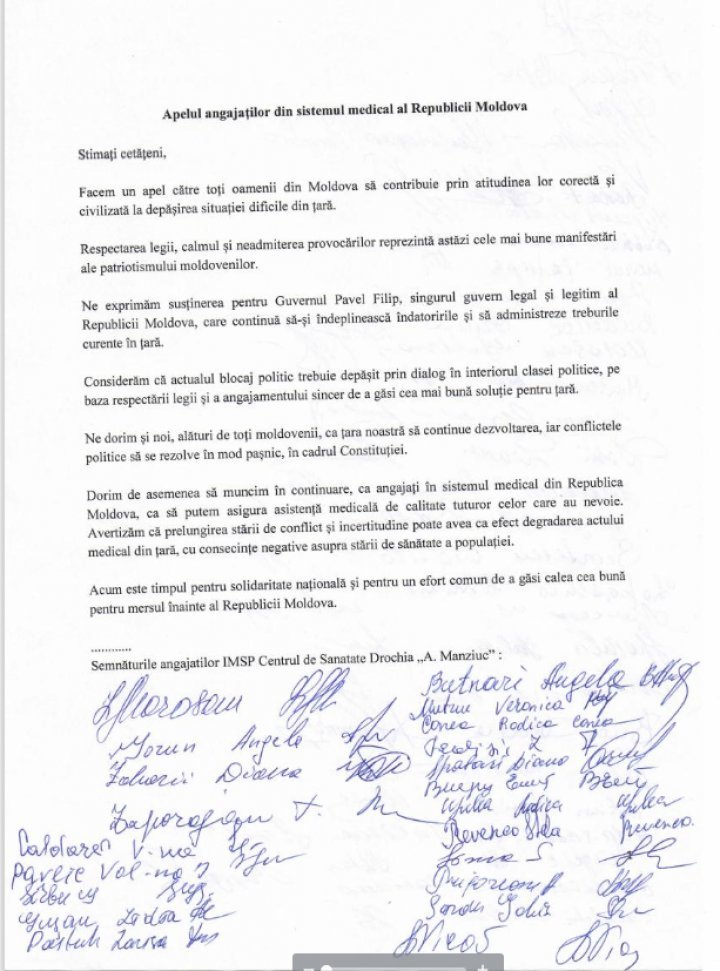 Apelul angajaților din sistemul medical al Republicii Moldova
Stimați cetățeni,
Facem un apel către toți oamenii din Moldova să contribuie prin atitudinea lor corectă și
civilizată la depășirea situației dificile din țară.
Respectarea legii, calmul și neadmiterea provocărilor reprezintă astăzi cele mai bune manifestări
ale patriotismului moldovenilor.
Ne exprimăm susținerea pentru Guvernul Pavel Filip, singurul guvern legal și legitim al
Republicii Moldova, care continuă să-și îndeplinească îndatoririle și să administreze treburile
curente în țară.
Considerăm că actualul blocaj politic trebuie depășit prin dialog în interiorul clasei politice, pe
baza respectării legii și a angajamentului sincer de a găsi cea mai bună soluție pentru țară.
Ne dorim și noi, alături de toți moldovenii, ca țara noastră să continue dezvoltarea, iar conflictele
politice să se rezolve în mod pașnic, în cadrul Constituției.
Dorim de asemenea să muncim în continuare, ca angajați în sistemul medical din Republica
Moldova, ca să putem asigura asistență medicală de calitate tuturor celor care au nevoie.
Avertizăm că prelungirea stării de conflict și incertitudine poate avea ca efect degradarea actului
medical din țară, cu consecințe negative asupra stării de sănătate a populației.
Acum este timpul pentru solidaritate națională și pentru un efort comun de a găsi calea cea bună
pentru mersul înainte al Republicii Moldova.
............
Semnăturile angajatilor IMSP Centrul de Sanatate Drochia „A. Manziuc” :
Morosan
Butnari Angela
Veronica
Conea Rodica Conea
Angela
Diana
Spatari Diana
Rodica
Revenco Revenco